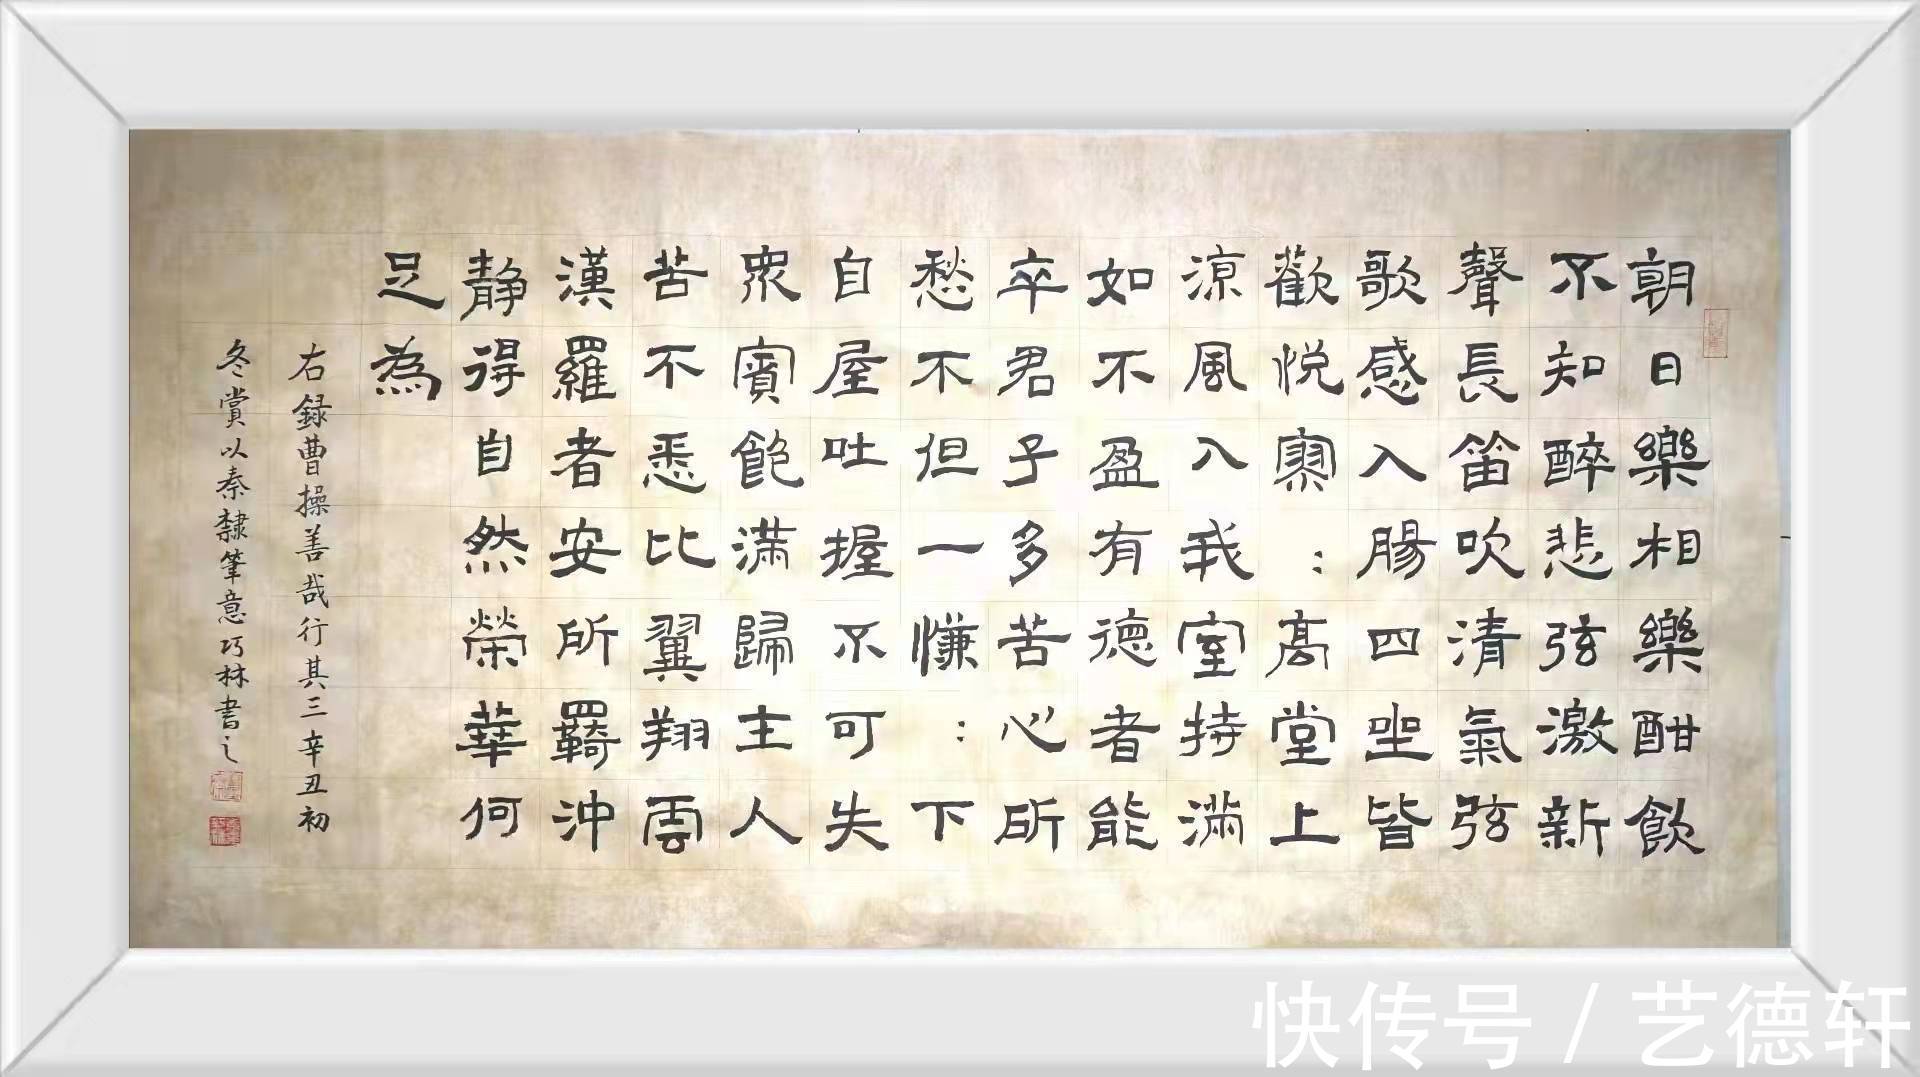 朝日樂相樂酣飲
不知醉悲弦激新
聲長笛吹清氣弦
歌感入腸四坐皆
歡悦寥：高堂上
涼風入我室持滿
如不盈有德者能
卒君子多苦心所
愁不但一慊：下
自屋吐握不可失
眾賓飽滿歸主人
苦不悉比翼翔雲
漢羅者安所羈沖
静得自然榮華何
足為
右録曹操善哉行其三辛丑初
冬賞以秦隸筆意巧林書之
快传号 / 艺德轩